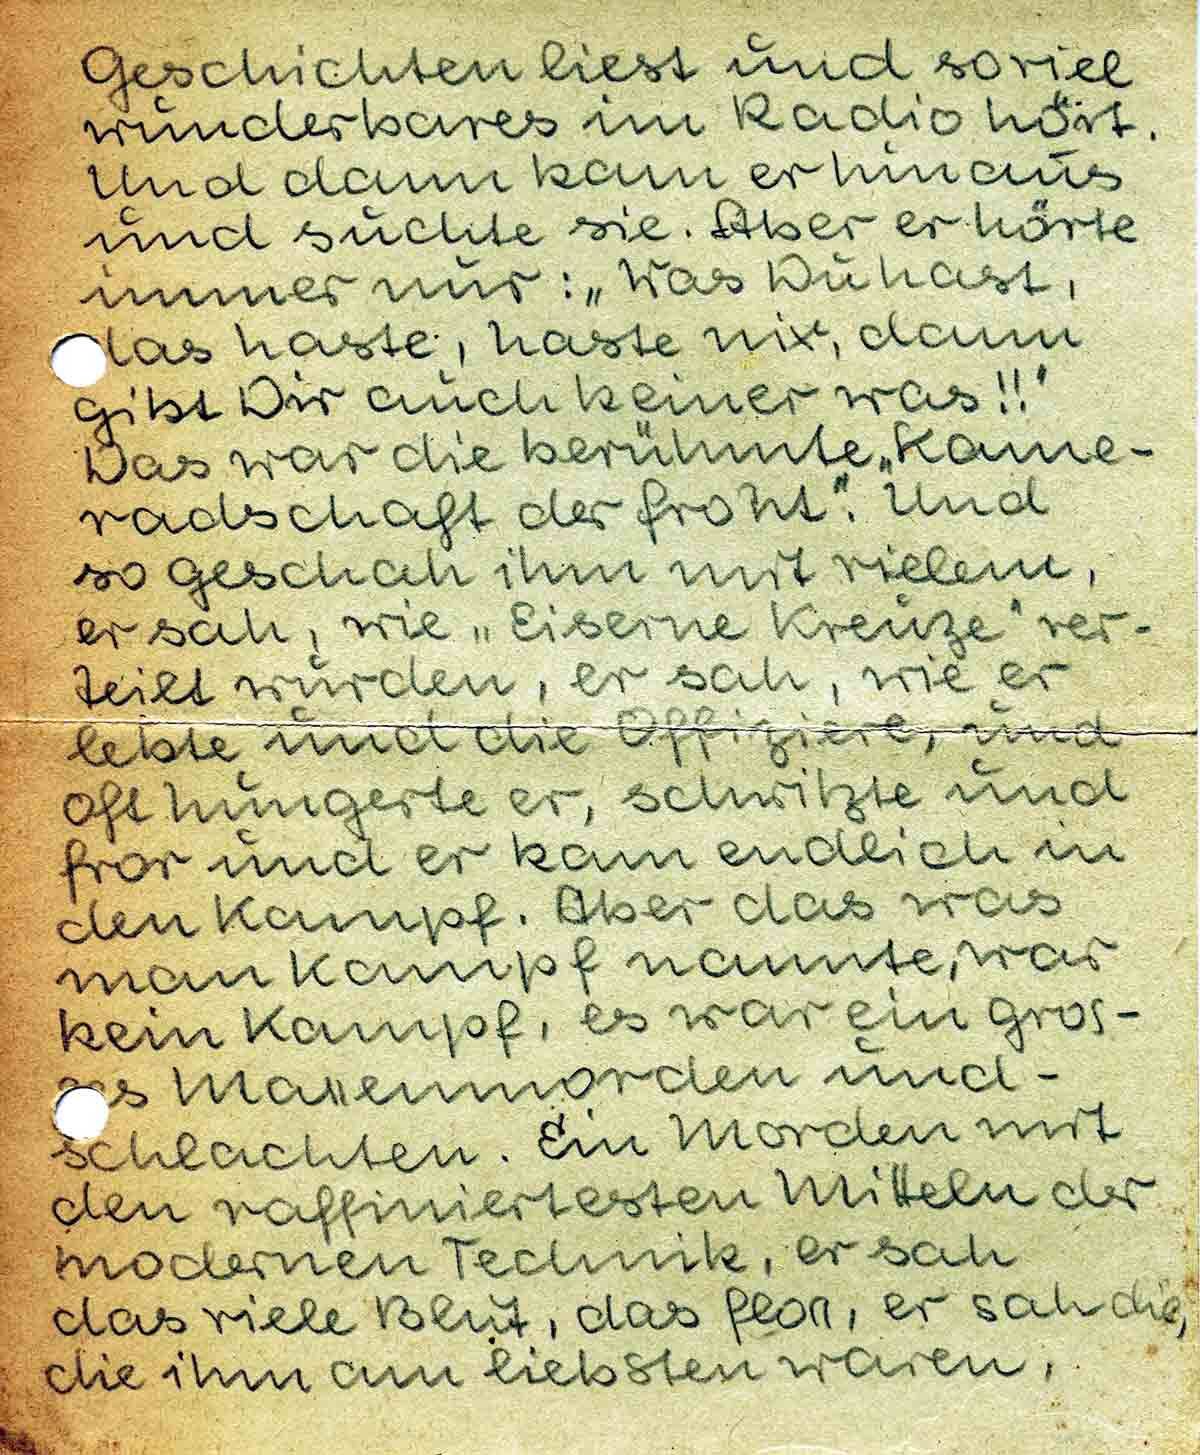 Geschichten liest und soviel
wunderbares im Radio hört.
Und dann kam er hinaus
und suchte sie. Aber er hörte
immer nur: „Was Du hast,
das haste, haste nix, dann
gibt Dir auch keiner was!!"
Das war die berühmte „Kame-
radschaft der Front". Und
so geschah ihm mit vielem,
er sah, wie „Eiserne Kreuze" ver-
teilt wurden, er sah, wie er
lebte und die Offiziere, und
oft hungerte er, schwitzte und
fror und er kam endlich in
den Kampf. Aber das was
man Kampf nannte, war
kein Kampf, es war ein gros-
ses Massenmorden und -
schlachten. Ein Morden mit
den raffiniertesten Mitteln der
modernen Technik, er sah
das viele Blut, das floss, er sah die,
die ihm am liebsten waren,